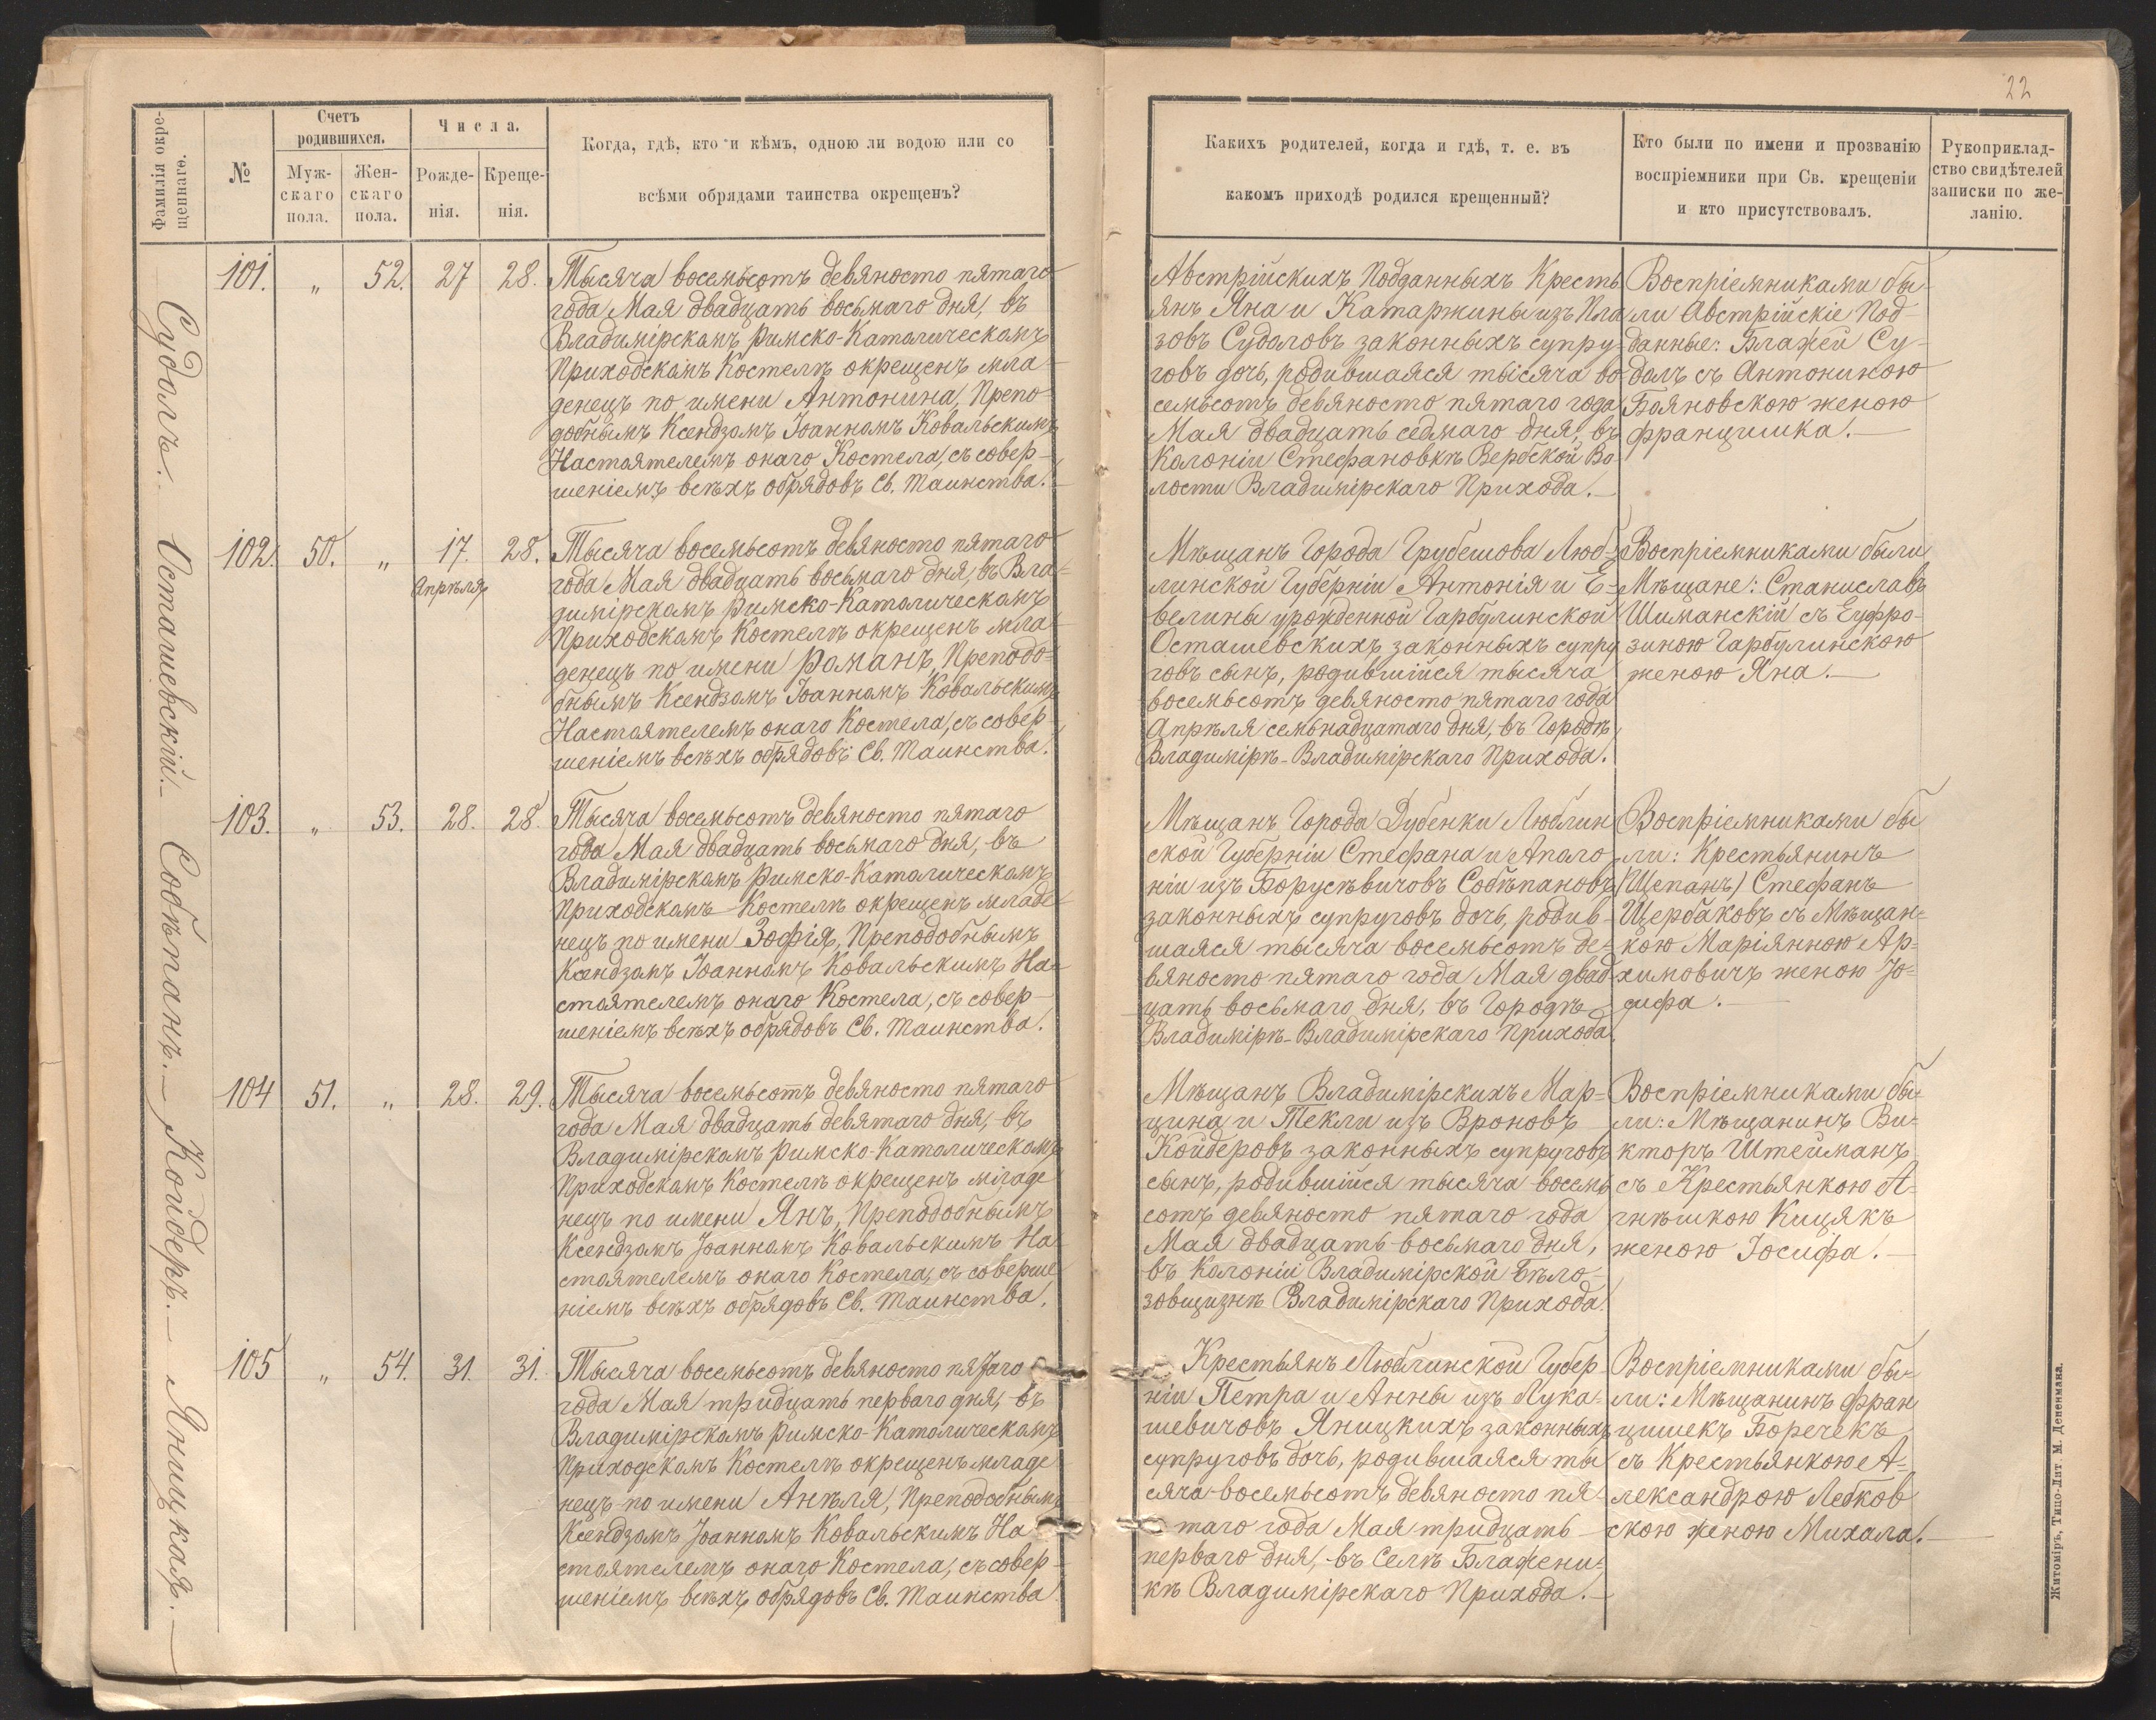 22
Фамилія окре-
щеннаго.
№
Счетъ
родившихся.
Муж-
скаго
пола.
Жен-
скаго
пола.
Числа.
Рожде-
нія.
Креще-
нія.
Когда, гдѣ, кто и кѣмъ, одною ли водою или со
всѣми обрядами таинства окрещенъ?
Какихъ родителей, когда и гдѣ, т. е. въ
какомъ приходѣ родился крещенный?
Кто были по имени и прозванію
воспріемники при Св. крещеніи
и кто присутствовалъ.
Рукоприклад-
ство свидѣтелей
записки по же-
ланію.
Судолъ.
101. „ 52. 27 28.
Тысяча восемьсотъ девяносто пятаго
года Мая двадцать восьмаго дня, въ
Владимірскомъ Римско-Католическомъ
Приходскомъ Костелѣ окрещенъ мла-
денецъ по имени Антонина, Препо-
добнымъ Ксендзомъ Іоанномъ Ковальскимъ
Настоятелемъ онаго Костела, съ совер-
шеніемъ всѣхъ обрядовъ Св. Таинства.
Австрійскихъ Подданныхъ Кресть
янъ Яна и Катаржины изъ Пла
зовъ Судоловъ законныхъ супру
говъ дочь, родившаяся тысяча во
семьсотъ девяносто пятаго года
Мая двадцать седмаго дня, въ
Колоніи Стефановкѣ Вербской Во
лости Владимірскаго Прихода.
Воспріемниками бы-
ли Австрійскіе Под-
данные: Блажей Су-
долъ съ Антониною
Бояновскою женою
Францишка.
Осташевскій.
102. 50. „ 17. Апрѣля 28.
Тысяча восемьсотъ девяносто пятаго
года Мая двадцать восьмаго дня, въ Вла-
димірскомъ Римско-Католическомъ
Приходскомъ Костелѣ окрещенъ мла-
денецъ по имени Романъ, Преподо-
бнымъ Ксендзомъ Іоанномъ Ковальскимъ
Настоятелемъ онаго Костела, съ совер-
шеніемъ всѣхъ обрядовъ Св. Таинства.
Мѣщанъ Города Грубешова Люб-
линской Губерніи Антонія и Е-
велины урожденной Гарбулинской
Осташевскихъ, законныхъ супру
говъ сынъ, родившійся тысяча
восемьсотъ девяносто пятаго года
Апрѣля семьнадцатаго дня, въ Городѣ
Владимірѣ-Владимірскаго Прихода.
Воспріемниками были
Мѣщане: Станиславъ
Шиманскій съ Еуфро-
зиною Гарбулинскою
женою Яна.
Собѣпанъ.
103. „ 53. 28. 28.
Тысяча восемьсотъ девяносто пятаго
года Мая двадцать восьмаго дня, въ
Владимірскомъ Римско-Католическомъ
Приходскомъ Костелѣ окрещенъ младе
нецъ по имени Зофія, Преподобнымъ
Ксендзомъ Іоанномъ Ковальскимъ На-
стоятелемъ онаго Костела, съ совер-
шеніемъ всѣхъ обрядовъ Св. Таинства.
Мѣщанъ Города Дубенки Люблин
ской Губерніи Стефана и Аполо
ніи изъ Борусѣвичовъ Собѣпановъ
законныхъ супруговъ дочь, родив-
шаяся тысяча восемьсотъ де-
вяносто пятаго года Мая двад
цать восьмаго дня, въ Городѣ
Владимірѣ-Владимірскаго Прихода.
Воспріемниками бы
ли: Крестьянинъ
(Щепанъ) Стефанъ
Щербаковъ съ Мѣщан-
кою Маріянною Ар-
химовичъ женою Іо-
сифа.
Койдеръ.
104 51. „ 28. 29.
Тысяча восемьсотъ девяносто пятаго
года Мая двадцать девятаго дня, въ
Владимірскомъ Римско-Католическомъ
Приходскомъ Костелѣ окрещенъ младе
нецъ по имени Янъ, Преподобнымъ
Ксендзомъ Іоанномъ Ковальскимъ На
стоятелемъ онаго Костела, съ соверше
ніемъ всѣхъ обрядовъ Св. Таинства.
Мѣщанъ Владимірскихъ Мар-
цина и Текли изъ Вроновъ
Койдеровъ законныхъ супруговъ
сынъ, родившійся тысяча восемь
сотъ девяносто пятаго года
Мая двадцать восьмаго дня,
въ Колоніи Владимірской Бѣло-
зовщизнѣ Владимірскаго Прихода.
Воспріемниками бы-
ли: Мѣщанинъ Ви-
кторъ Штейманъ
съ Крестьянкою А-
гнѣшкою Кицякъ
женою Іосифа.
Яницкая.
105 „ 54. 31. 31.
Тысяча восемьсотъ девяносто пятаго
года Мая тридцать перваго дня, въ
Владимірскомъ Римско-Католическомъ
Приходскомъ Костелѣ окрещенъ младе
нецъ по имени Анѣля, Преподобнымъ
Ксендзомъ Іоанномъ Ковальскимъ На
стоятелемъ онаго Костела, съ совер-
шеніемъ всѣхъ обрядовъ Св. Таинства
Крестьянъ Люблинской Губер
ніи Петра и Анны изъ Лука-
шевичовъ Яницкихъ законныхъ
супруговъ дочь, родившаяся ты
сяча восемьсотъ девяносто пя-
таго года Мая тридцать
перваго дня, въ Селѣ Блажени-
кѣ Владимірскаго Прихода.
Воспріемниками бы-
ли: Мѣщанинъ Фран
цишекъ Боречекъ
съ Крестьянкою А-
лександрою Лебков
скою женою Михала.
Житоміръ, Типо-Лит. М. Дененмана.